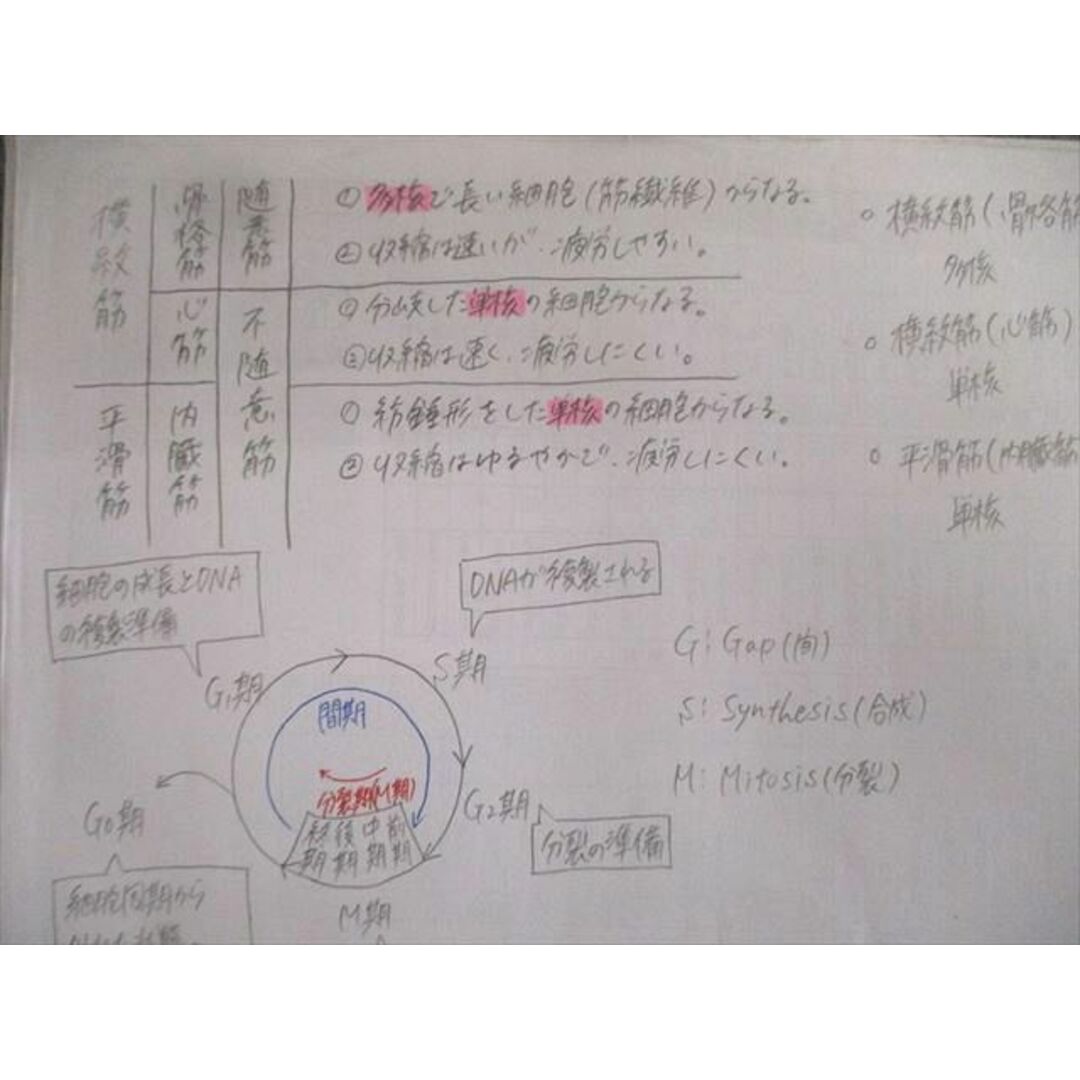 横紋筋
骨格筋
随意筋
① 多核で長い細胞(筋繊維)からなる。
② 収縮は速いが、疲労しやすい。
心筋
不随意筋
① 分岐した単核の細胞からなる。
② 収縮は速く、疲労しにくい。
平滑筋
内臓筋
① 紡錘形をした単核の細胞からなる。
② 収縮はゆるやかで、疲労しにくい。
○ 横紋筋(骨格筋
多核
○ 横紋筋(心筋)
単核
○ 平滑筋(内臓筋
単核
細胞の成長とDNA
の複製準備
DNAが複製される
G1期
S期
間期
分裂期(M期)
終期 後期 中期 前期
G0期
G2期
分裂の準備
M期
細胞周期から
G: Gap(間)
S: Synthesis(合成)
M: Mitosis(分裂)